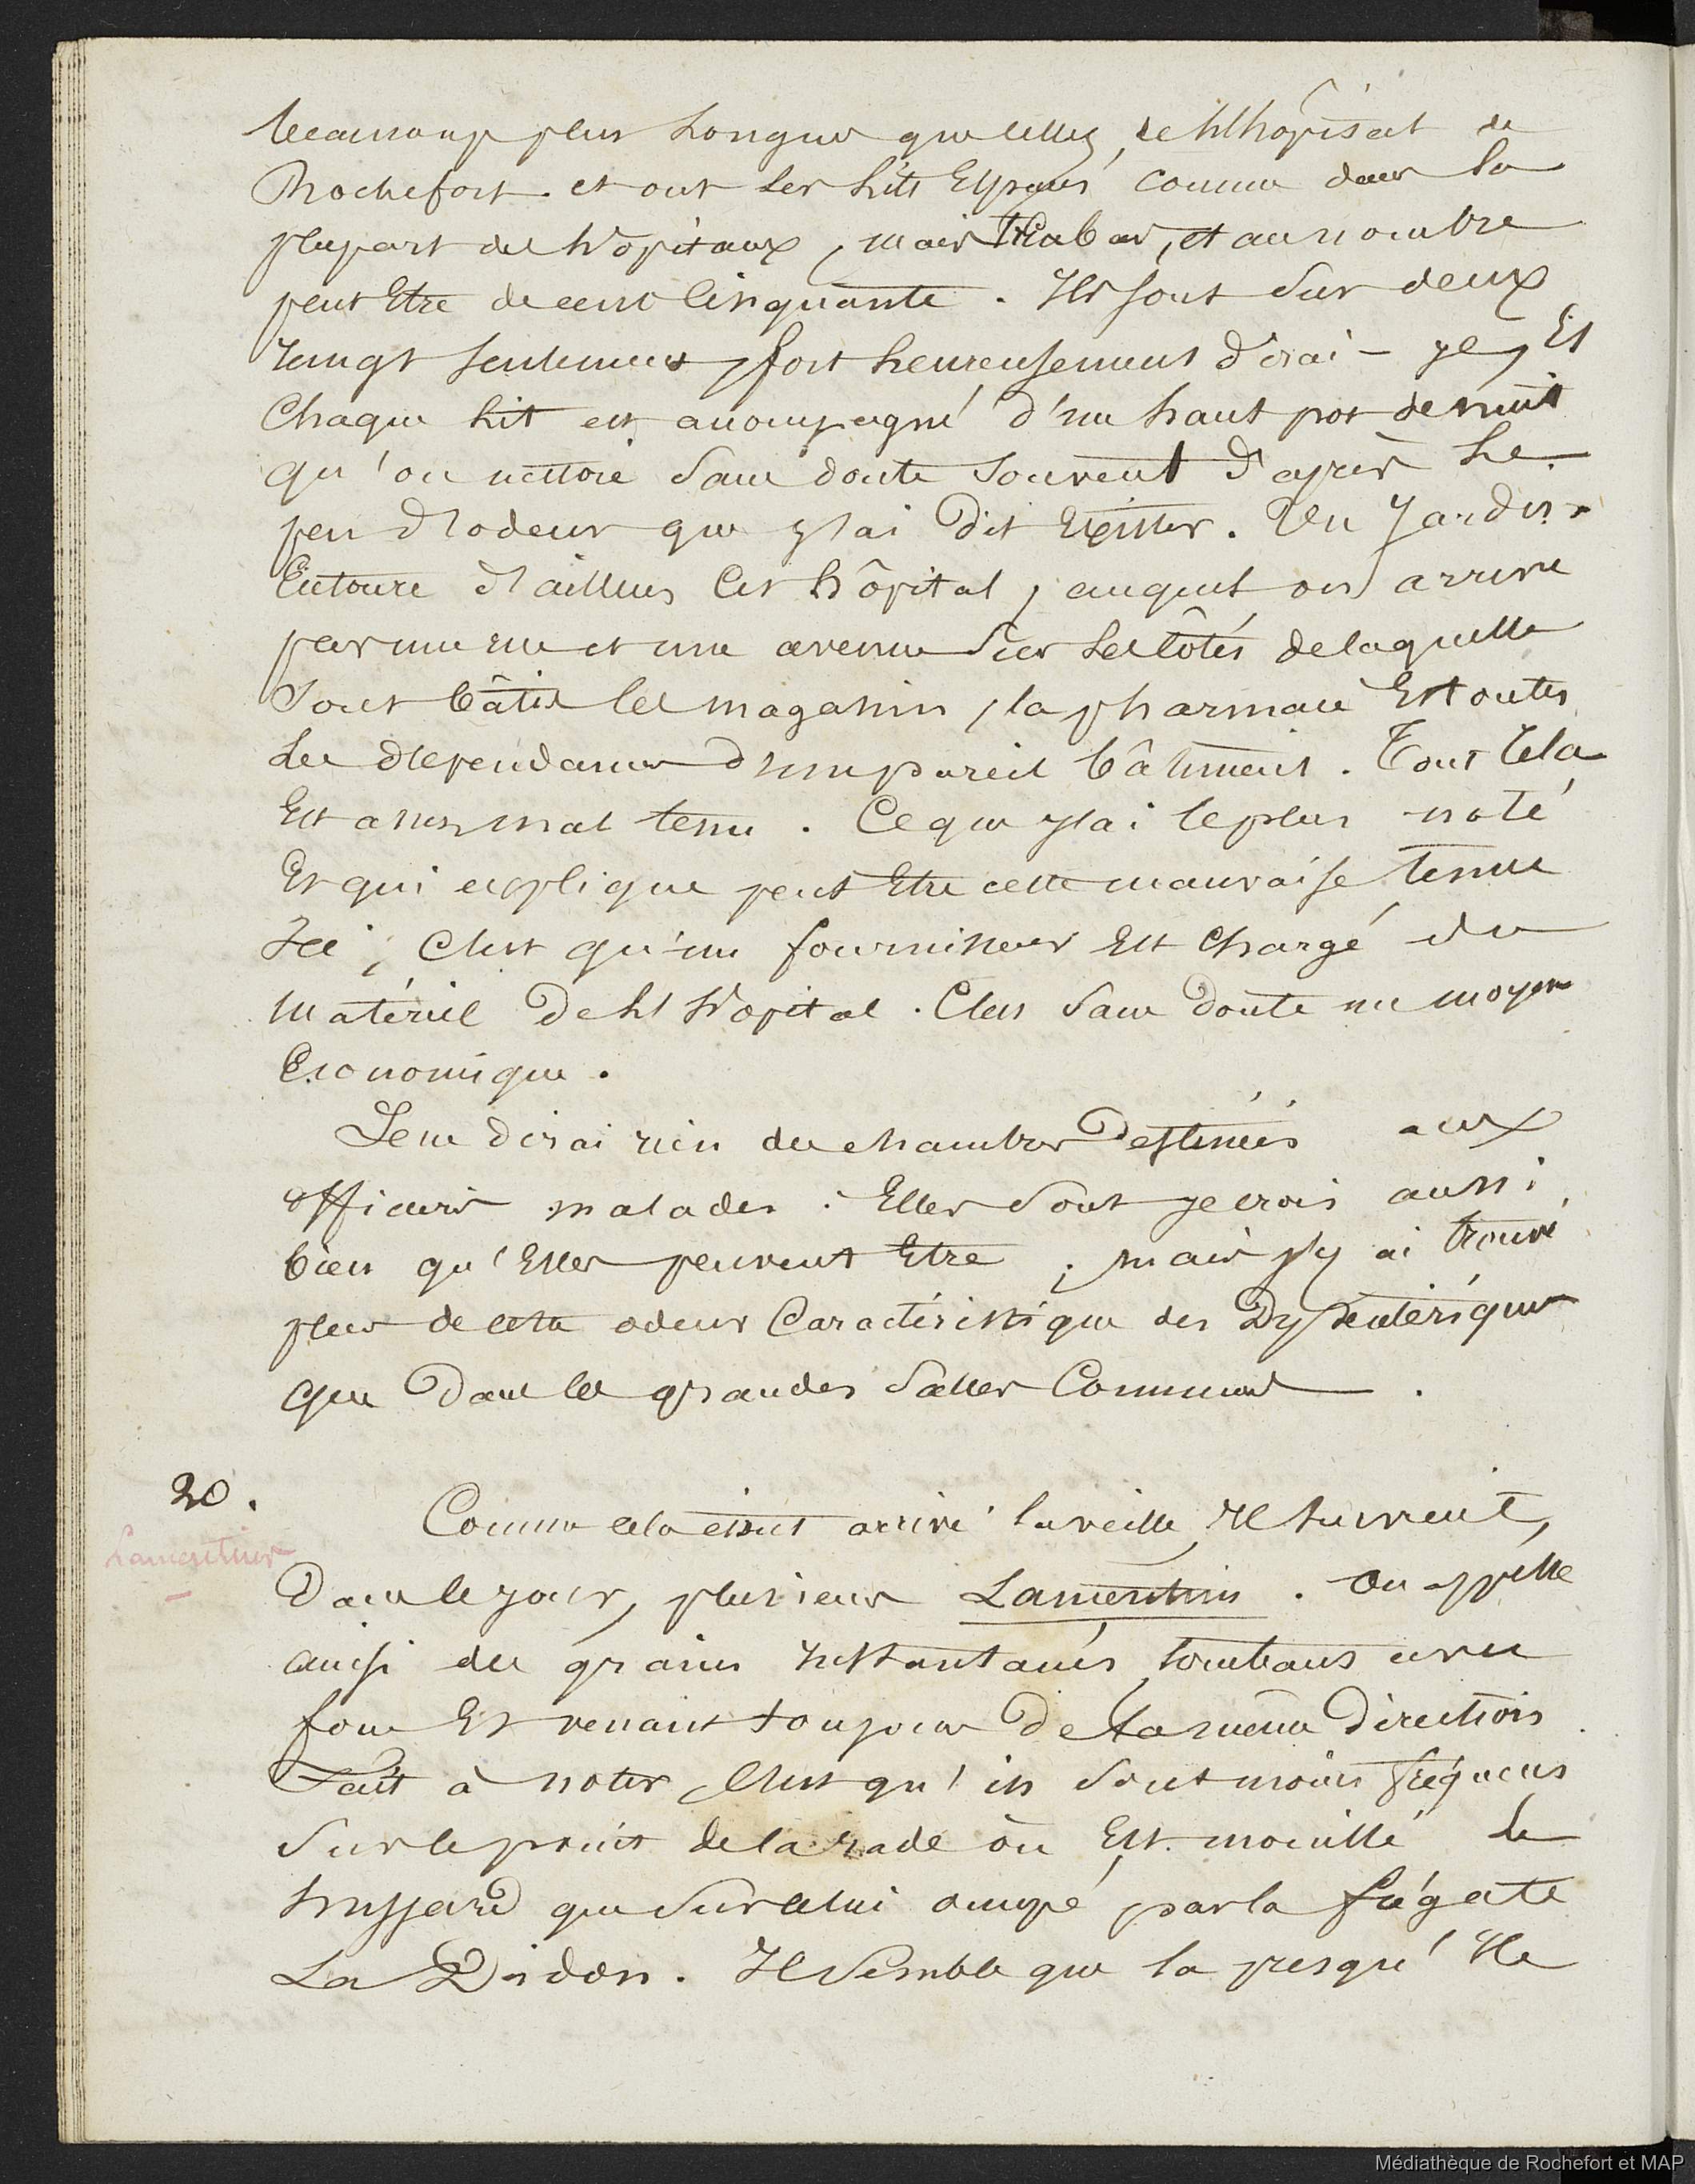 beaucoup plus longues que celles, de l'hôpital de
Rochefort. et ont les lits espacés comme dans la
plupart des hôpitaux, mais très bas, et au nombre
peut Etre de cent cinquante. Ils sont sur deux
rangs seulement, fort heureusement dirai-je, Et
Chaque lit est accompagné d'un haut pot de nuit
qu'on nettoie sans doute souvent d'après Le
peu d'odeur que j'ai dit Exister. Un Jardin
Entoure d'ailleurs Cet hôpital, auquel on arrive
par une rue et une avenue sur les côtés de laquelle
sont bâtis les magasins, la pharmacie Et toutes
les dépendances d'un pareil bâtiment. Tout Cela
Est assez mal tenu. Ce que j'ai le plus noté
Et qui explique peut Etre cette mauvaise tenue
Ici, C'est qu'un fournisseur Est Chargé du
Matériel De L'hôpital. C'est sans Doute un moyen
Economique.
Je ne dirai rien des chambres Destinées aux
officiers malades : Elles sont je crois aussi
bien qu'Elles peuvent Etre ; mais j'y ai trouvé
plus de cette odeur Caractéristique des Dyssentériques
que Dans les grandes Salles Communes.
20. Comme cela était arrivé la veille, Il survint,
Lamentins
Dans le jour, plusieurs Lamentins. On appelle
ainsi des grains Instantanés, tombans avec
force Et venant toujours De la même Direction.
Fait à noter, C'est qu'ils sont moins fréquens
Sur le point de la rade où Est mouillé le
hussard que Sur celui occupé par la frégate
La Didon. Il Semble que la presqu'Ile